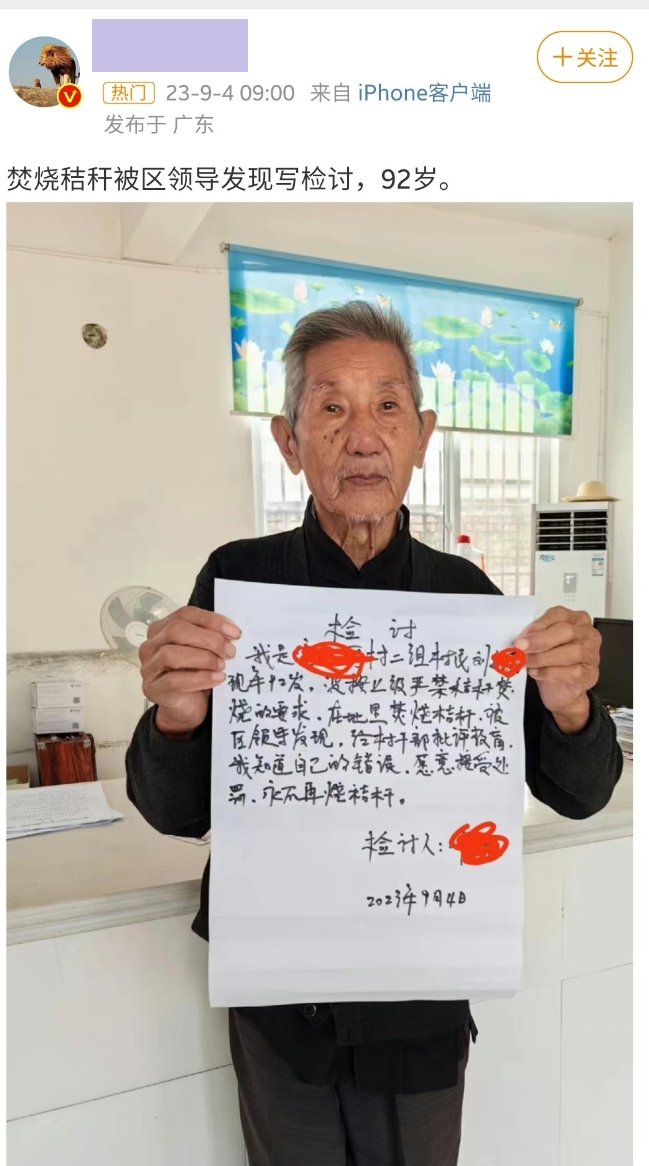 热门 23-9-4 09:00 来自 iPhone客户端
+关注
发布于 广东
焚烧秸秆被区领导发现写检讨，92岁。
检 讨
我是 村二组村民刘
现年92岁，没按上级严禁秸秆焚
烧的要求，在地里焚烧秸秆，被
区领导发现，给村干部批评教育，
我知道自己的错误，愿意接受处
罚，永不再烧秸秆。
检讨人：
2023年9月4日